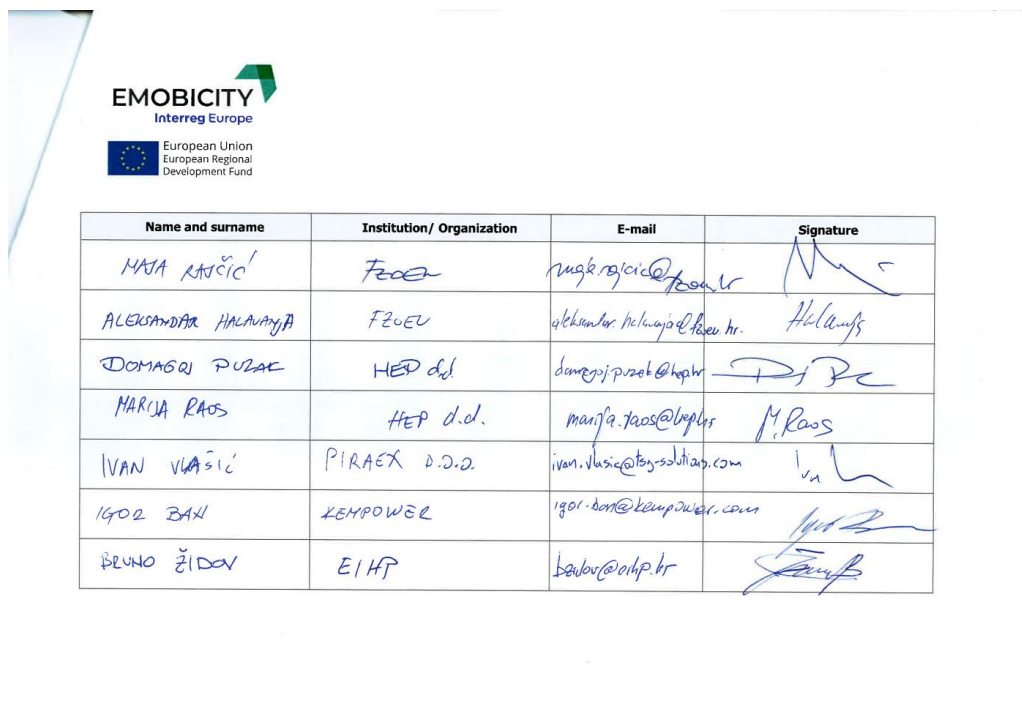 EMOBICITY
Interreg Europe
European Union
European Regional
Development Fund
Name and surname Institution/ Organization E-mail Signature
MAJA RAJČIĆ FZOEU
ALEKSANDAR HALAVANJA FZOEU aleksandar.halavanja@fzoeu.hr. Halavanja
DOMAGOJ PUZAK HEP d.d. domagoj.puzak@hep.hr
MARIJA RAOS HEP d.d. marija.raos@hep.hr M. Raos
IVAN VLAŠIĆ PIRAEX D.O.O. ivan.vlasic@tsg-solutions.com
IGOR BAN KEMPOWER igor.ban@kempower.com
BRUNO ŽIDOV EIHP